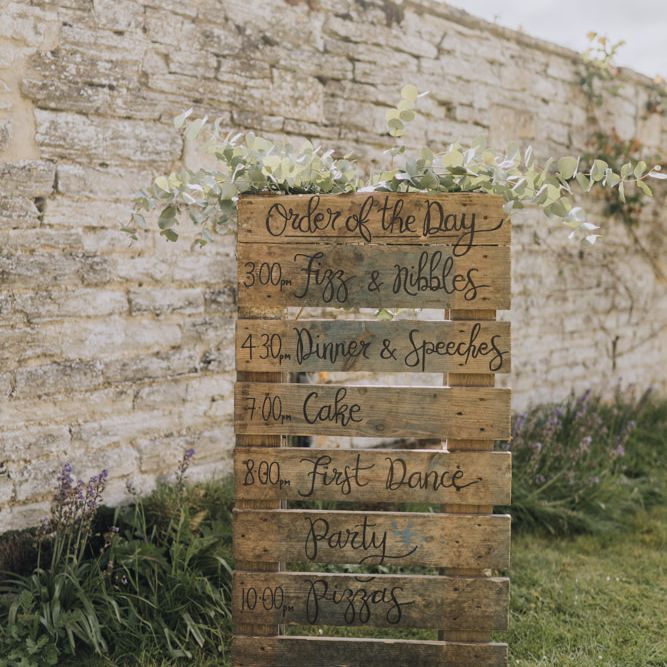 Order of the Day
3:00pm Fizz & Nibbles
4:30pm Dinner & Speeches
7:00pm Cake
8:00pm First Dance
Party
10:00pm Pizzas